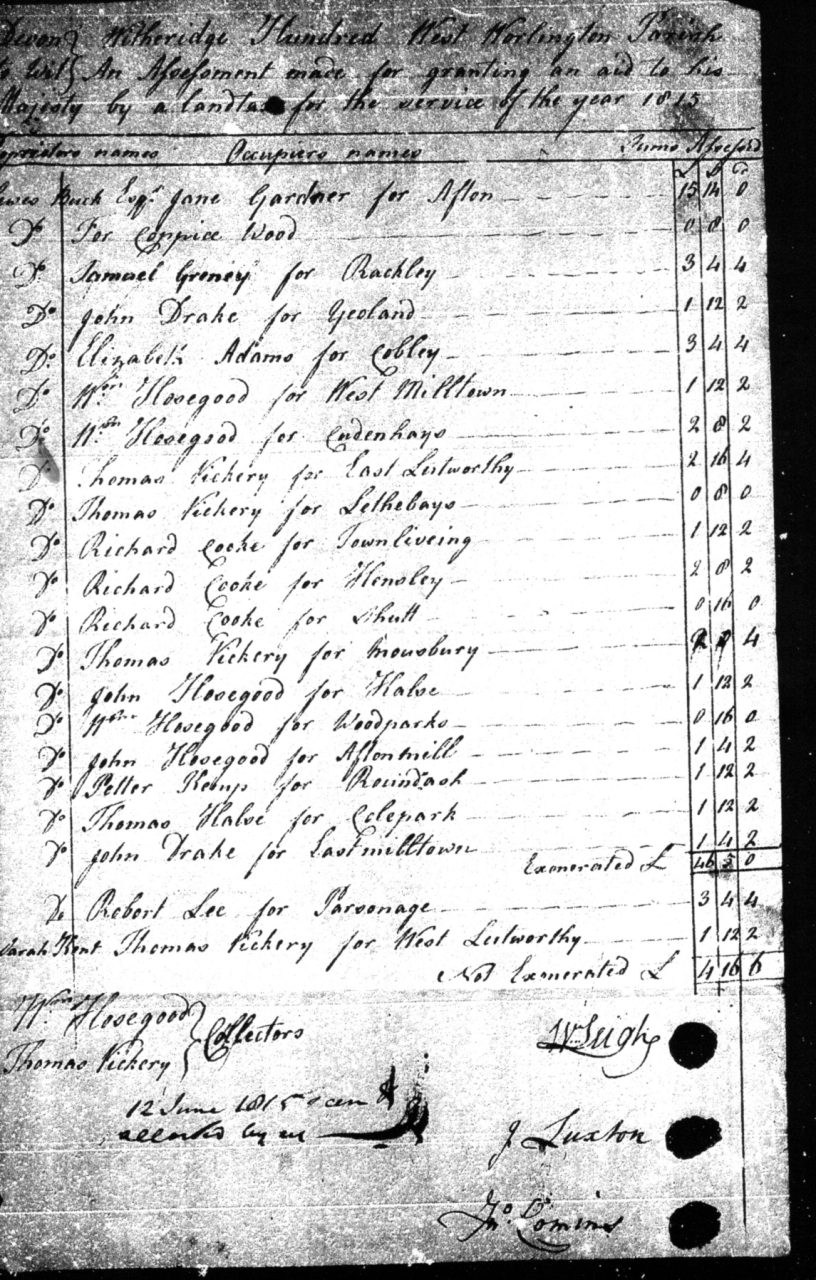 Devon } Witheridge Hundred West Worlington Parish
to Wit } An Assessment made for granting an aid to his
Majesty by a landtax for the service of the year 1815
Propriators names Occupiers names Sums Assessd
£ S D
Lewes Buck Esqr. Jane Gardner for Afton 15 14 0
Do For Coppice Wood 0 8 0
Do. Samuel Groney for Rackley 3 4 4
Do John Drake for Yeoland 1 12 2
Do. Elizabeth Adams for Cobley 3 4 4
Do Wm. Hosegood for West Milltown 1 12 2
Do Wm. Hosegood for Cudenhays 2 8 2
Do Thomas Vickery for East Leitworthy 2 16 4
Do Thomas Vickery for Lethebays 0 8 0
Do Richard Cooke for Townliveing 1 12 2
Do Richard Cooke for Hensley 2 8 2
Do Richard Cooke for Shutt 0 16 0
Do Thomas Vickery for Mousbury 4
Do John Hosegood for Halse 1 12 2
Do Wm Hosegood for Woodparks 0 16 0
Do John Hosegood for Aftonmill 1 4 2
Do Petter Kemp for Roundash 1 12 2
Do Thomas Halse for Colepark 1 12 2
Do John Drake for Eastmilltown 1 4 2
Exonerated £ 46 5 0
Do Robert Lee for Parsonage 3 4 4
Sarah Kent Thomas Vickery for West Leitworthy 1 12 2
Not Exonerated £ 4 16 6
Wm Hosegood }
Thomas Vickery } Collectors
12 June 1815
allowed by us
W Leigh
J Luxton
Jno. Comins